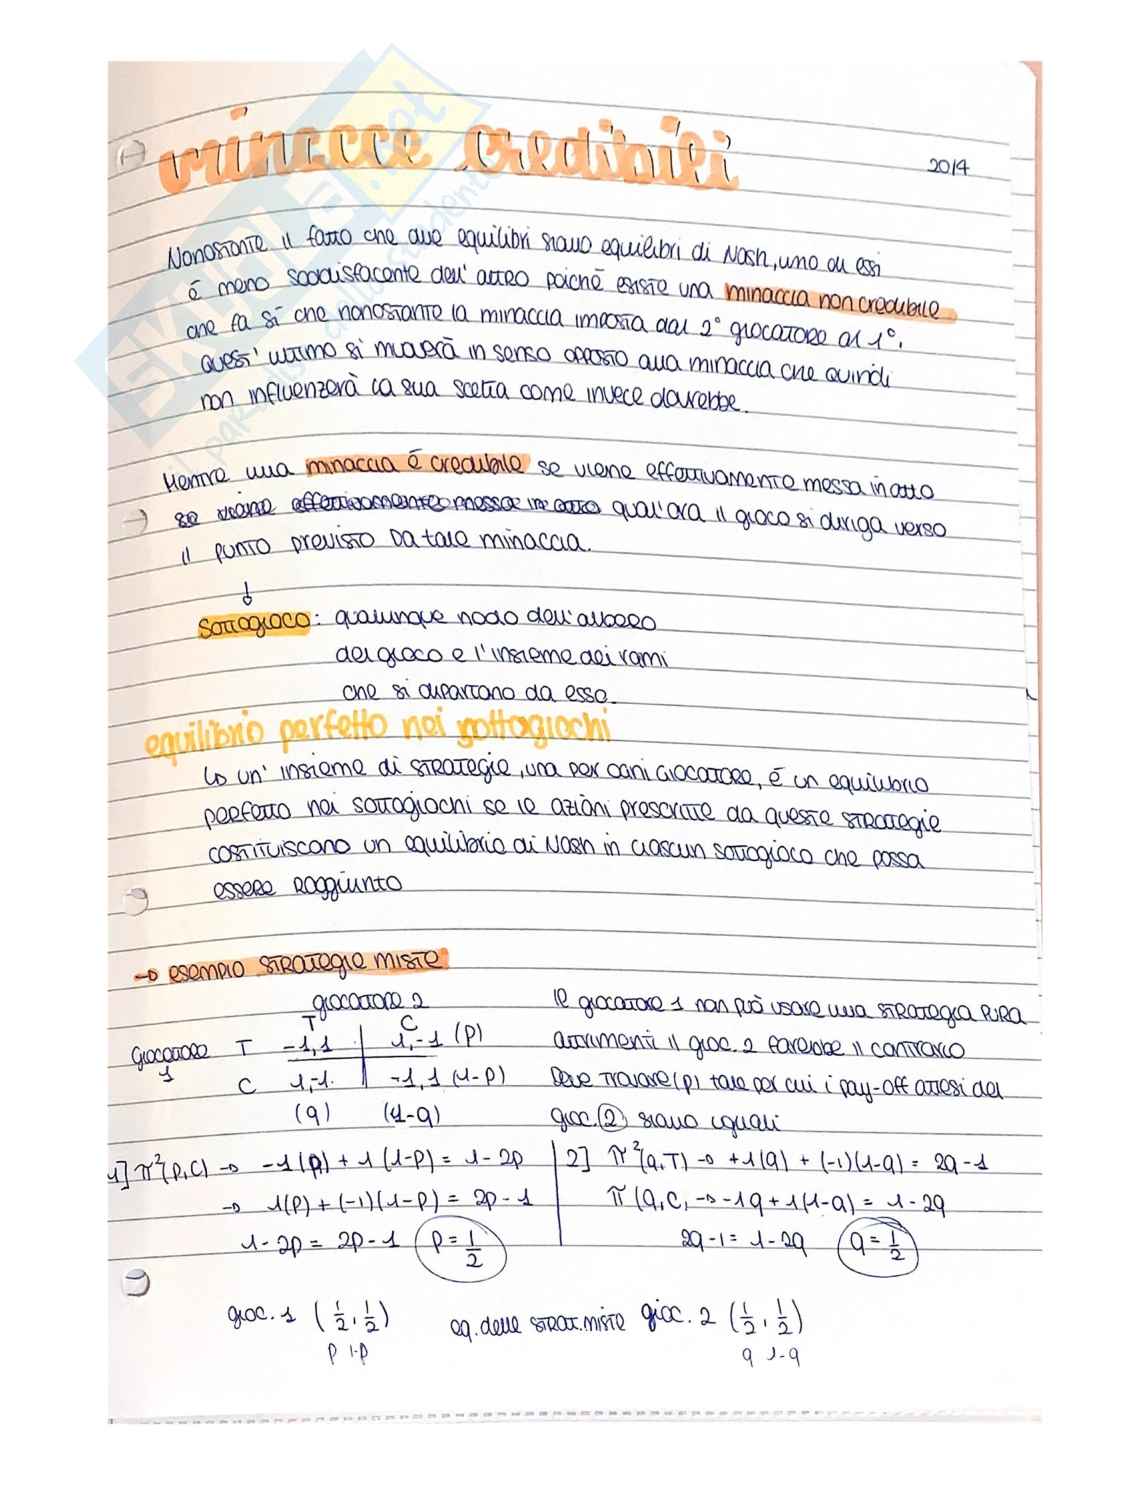 minacce credibili
20/4
Nonostante il fatto che due equilibri siano equilibri di Nash, uno di essi
é meno soddisfacente dell'altro poichè esiste una minaccia non credibile
che fa sì che nonostante la minaccia imposta dal 2° giocatore al 1°,
quest'ultimo si muoverà in senso opposto alla minaccia che quindi
non influenzerà la sua scelta come invece dovrebbe.
Mentre una minaccia é credibile se viene effettivamente messa in atto
se viene effettivamente messa in atto qual'ora il gioco si diriga verso
il punto previsto da tale minaccia.
↓
Sottogioco: qualunque nodo dell'albero
del gioco e l'insieme dei rami
che si dipartono da esso.
equilibrio perfetto nei sottogiochi
↳ un'insieme di strategie, una per ogni giocatore, é un equilibrio
perfetto nei sottogiochi se le azioni prescritte da queste strategie
costituiscano un equilibrio di Nash in ciascun sottogioco che possa
essere raggiunto
→ esempio strategie miste
giocatore 2
T C
giocatore 1 T -1,1 1,-1 (p)
C 1,-1. -1,1 (1-p)
(q) (1-q)
Il giocatore 1 non può usare una strategia pura
altrimenti il gioc. 2 farebbe il contrario
Deve trovare (p) tale per cui i pay-off attesi del
gioc. 2 siano uguali
1] π²(p,C) → -1(p) + 1(1-p) = 1-2p
→ 1(p) + (-1)(1-p) = 2p-1
1-2p = 2p-1 p = 1/2
2] π²(q,T) → +1(q) + (-1)(1-q) = 2q-1
π(q,C, → -1q + 1(1-q) = 1-2q
2q-1 = 1-2q q = 1/2
gioc. 1 (1/2, 1/2)
p 1-p
eq. delle strat. miste gioc. 2 (1/2, 1/2)
q 1-q
SKUOLA.net